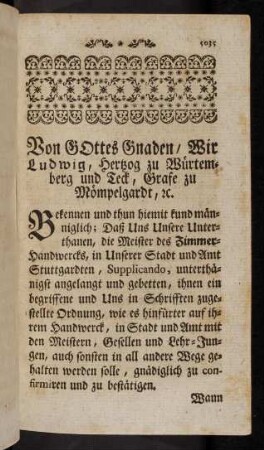 Von GOttes Gnaden / Wir
Ludwig, Hertzog zu Würtem-
berg und Teck, Grafe zu
Mömpelgardt, ꝛc.
Bekennen und thun hiemit kund män-
niglich; Daß Uns Unsere Unter-
thanen, die Meister des Zimmer-
Handwercks, in Unserer Stadt und Amt
Stuttgardten, Supplicando, unterthä-
nigst angelangt und gebetten, ihnen ein
begriffene und Uns in Schrifften zuge-
stellte Ordnung, wie es hinfürter auf ih-
rem Handwerck, in Stadt und Amt mit
den Meistern, Gesellen und Lehr-Jun-
gen, auch sonsten in all andere Wege ge-
halten werden solle, gnädiglich zu con-
firmiren und zu bestätigen.
Wann